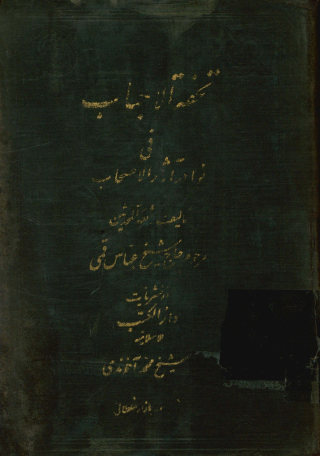 تحفة الاحباب
فی
نوادر آثار الاصحاب
تألیف ثقة المحدثین
مرحوم حاج شیخ عباس قمی
از نشریات
دارالکتب
الاسلامیه
شیخ محمد آخوندی
بازار سلطانی